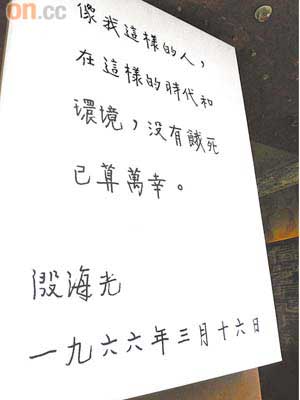 on.cc
像我這樣的人，
在這樣的時代和
環境，没有餓死
已算萬幸。
殷海光
一九六六年三月十六日